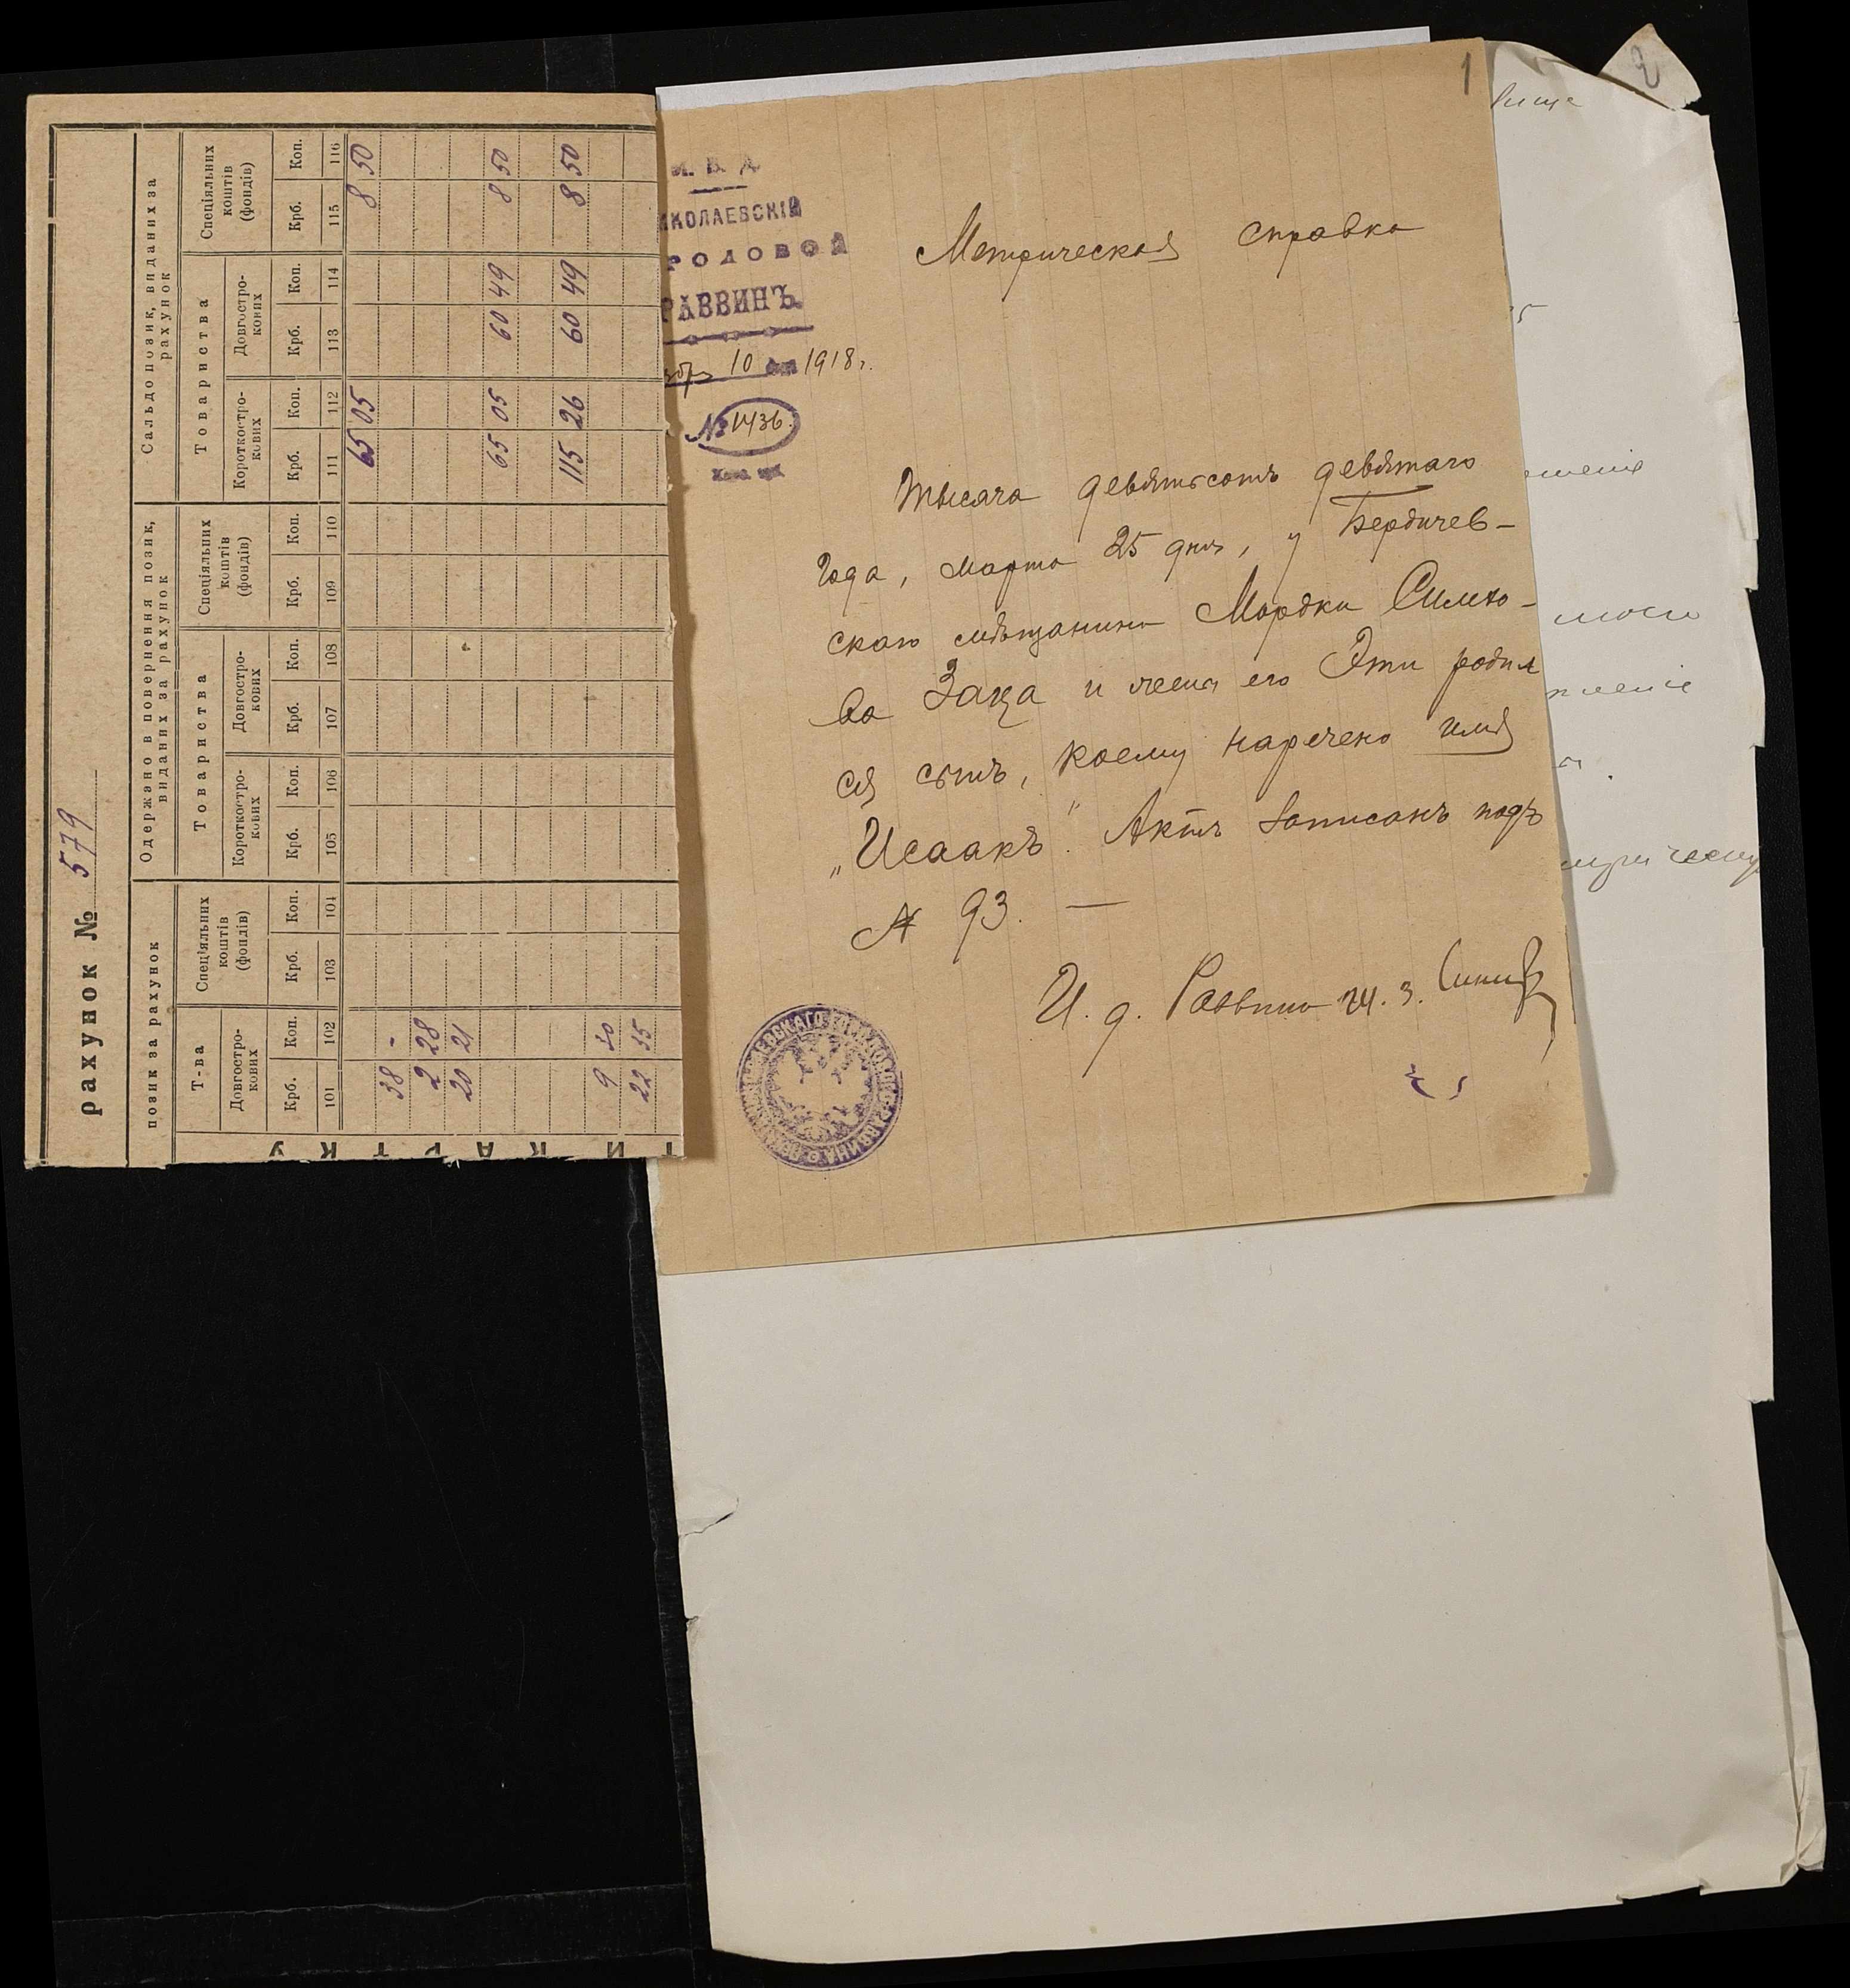 рахунок № 579
позик за рахунок
Одержано в повернення позик, виданих за рахунок
Сальдо позик, виданих за рахунок
Т-ва
Спеціяльних коштів (фондів)
Товариства
Спеціяльних коштів (фондів)
Товариства
Спеціяльних коштів (фондів)
Довгостро-кових
Короткостро-кових
Довгостро-кових
Короткостро-кових
Довгостро-кових
Крб. Коп. Крб. Коп. Крб. Коп. Крб. Коп. Крб. Коп. Крб. Коп. Крб. Коп. Крб. Коп.
101 102 103 104 105 106 107 108 109 110 111 112 113 114 115 116
65 05 8 50
38 -
2 28
20 21
65 05 60 49 8 50
115 26 60 49 8 50
9 30
22 35
КАРТКУ
1
2
М. В. Д.
ИКОЛАЕВСКІЙ
РОДОВОЙ
РАВВИНЪ
10 дня 1918 г.
№ 1436
Метрическая справка
Тысяча девятьсотъ девятаго
года, марта 25 дня, у Бердичев-
скаго мѣщанина Мордки Симхо-
ва Заца и жены его Эти родил
ся сынъ, коему наречено имя
„Исаакъ". Актъ записанъ подъ
№ 93. —
И. д. Раввина